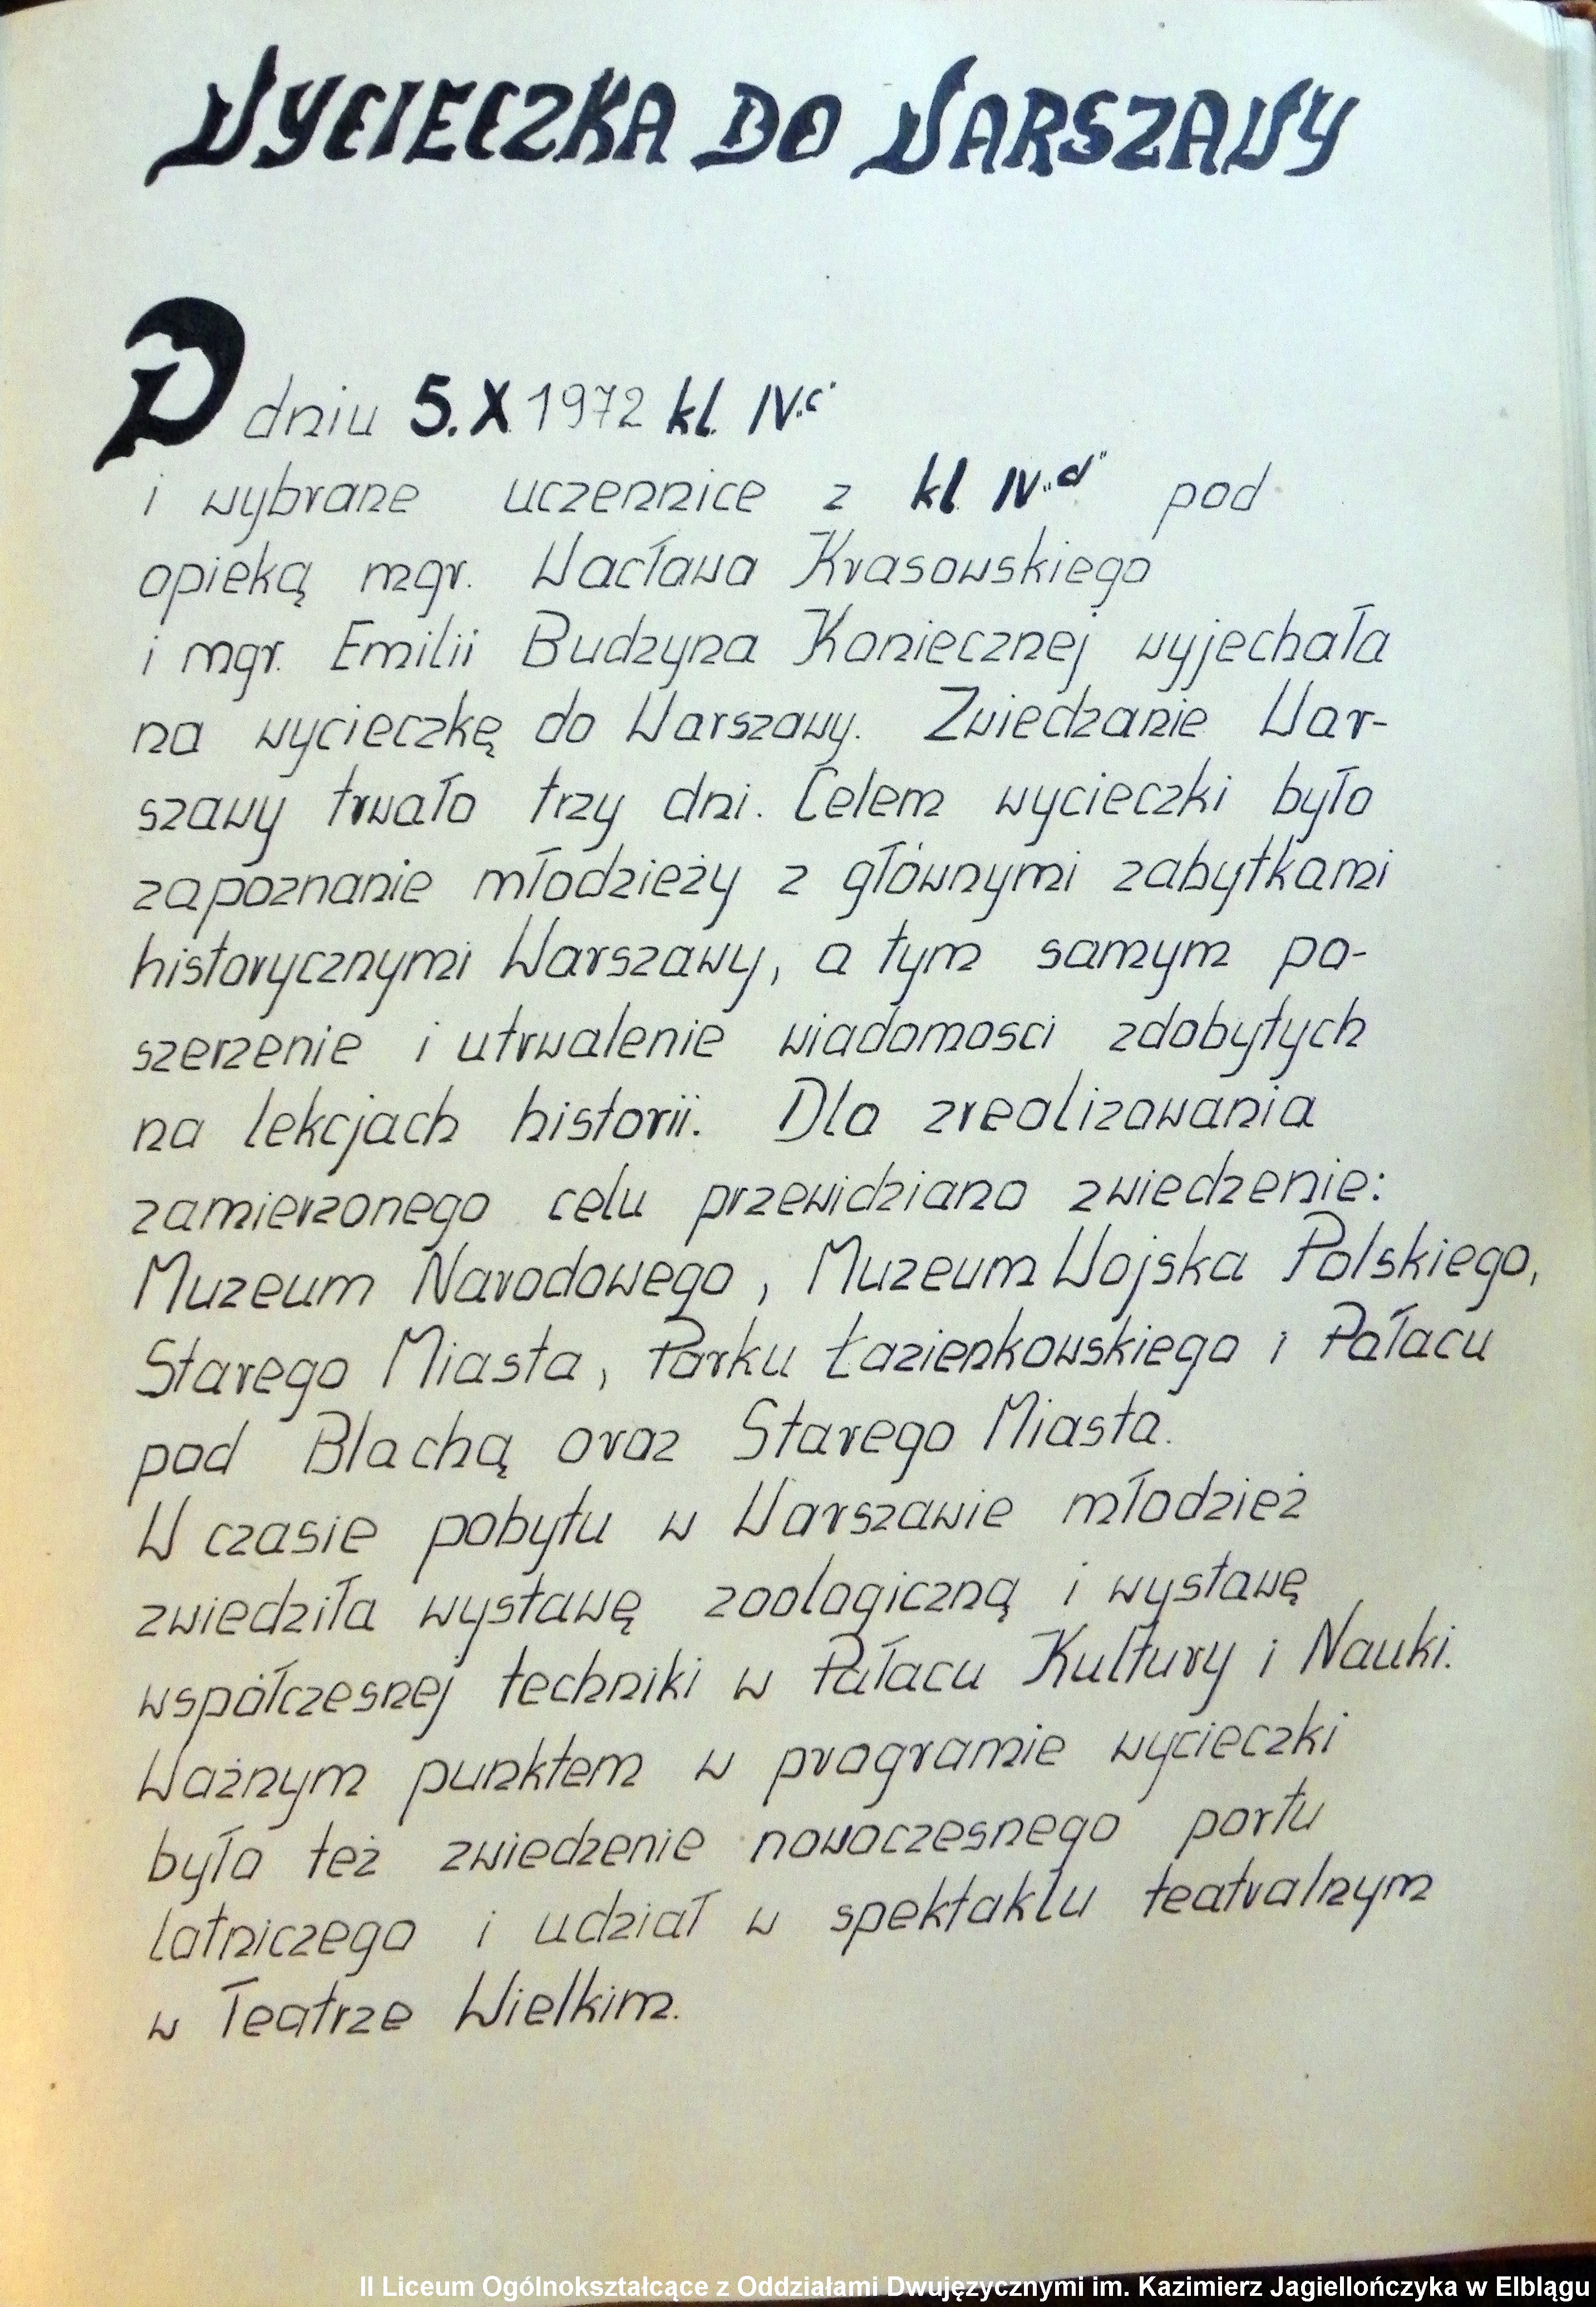 WYCIECZKA DO WARSZAWY
W dniu 5.X 1972 kl. IV "c"
i wybrane uczennice z kl. IV "d" pod
opieką mgr. Wacława Krasowskiego
i mgr. Emilii Budzyna Koniecznej wyjechała
na wycieczkę do Warszawy. Zwiedzanie War-
szawy trwało trzy dni. Celem wycieczki było
zapoznanie młodzieży z głównymi zabytkami
historycznymi Warszawy, a tym samym po-
szerzenie i utrwalenie wiadomosci zdobytych
na lekcjach historii. Dla zrealizowania
zamierzonego celu przewidziano zwiedzenie:
Muzeum Narodowego, Muzeum Wojska Polskiego,
Starego Miasta, Parku Łazienkowskiego i Pałacu
pod Blachą oraz Starego Miasta.
W czasie pobytu w Warszawie młodzież
zwiedziła wystawę zoologiczną i wystawę
współczesnej techniki w Pałacu Kultury i Nauki.
Ważnym punktem w programie wycieczki
było też zwiedzenie nowoczesnego portu
lotniczego i udział w spektaklu teatralnym
w Teatrze Wielkim.
II Liceum Ogólnokształcące z Oddziałami Dwujęzycznymi im. Kazimierz Jagiellończyka w Elblągu